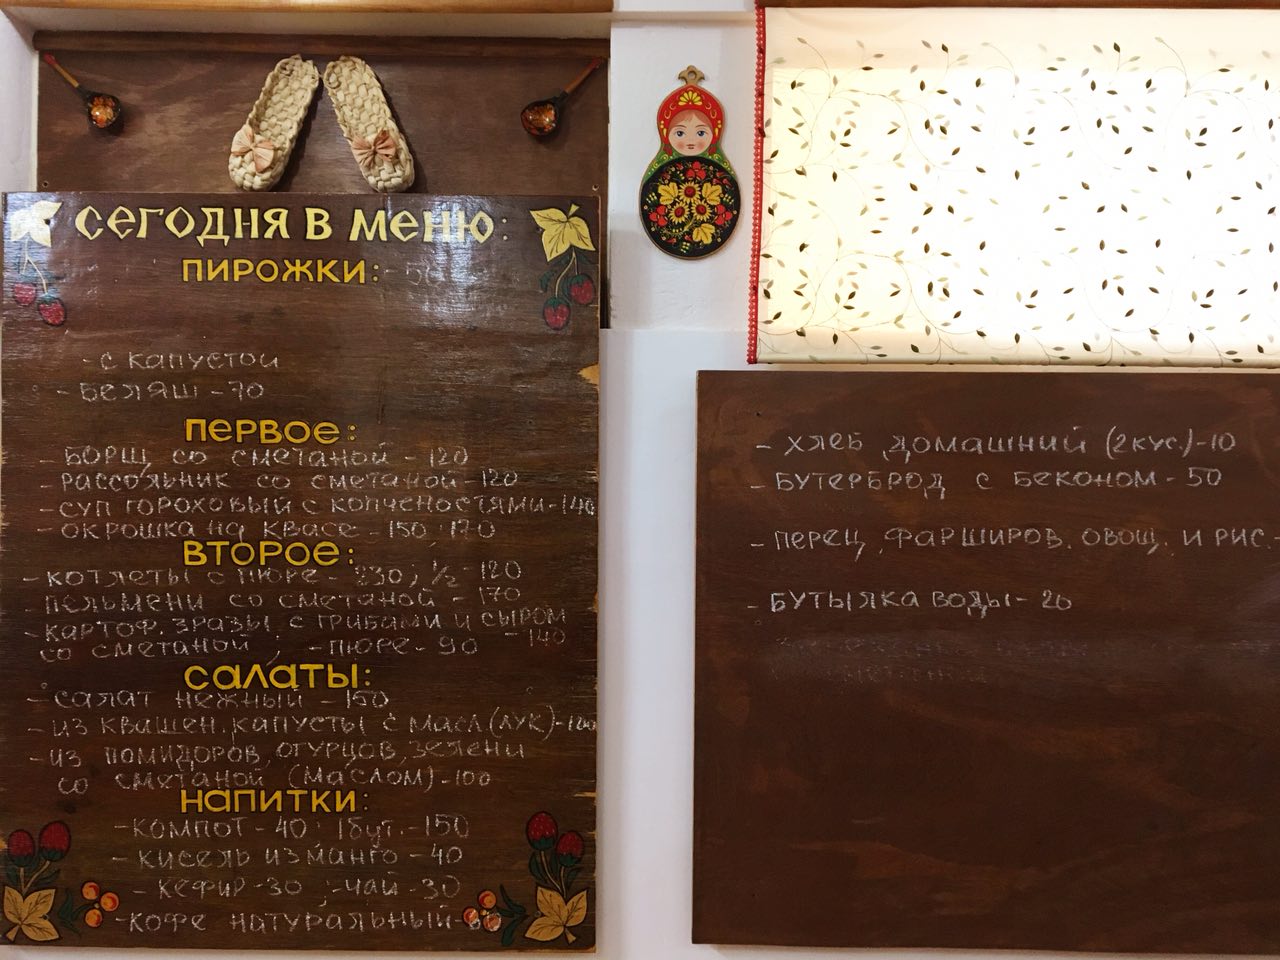 СЕГОДНЯ В МЕНЮ:
ПИРОЖКИ:
- С КАПУСТОЙ
- БЕЛЯШ - 70
ПЕРВОЕ:
- БОРЩ СО СМЕТАНОЙ - 120
- РАССОЛЬНИК СО СМЕТАНОЙ - 120
- СУП ГОРОХОВЫЙ С КОПЧЕНОСТЯМИ - 140
- ОКРОШКА НА КВАСЕ - 150, 170
ВТОРОЕ:
- КОТЛЕТЫ С ПЮРЕ - 230; 1/2 - 120
- ПЕЛЬМЕНИ СО СМЕТАНОЙ - 170
- КАРТОФ. ЗРАЗЫ С ГРИБАМИ И СЫРОМ
СО СМЕТАНОЙ, - ПЮРЕ - 90 - 140
САЛАТЫ:
- САЛАТ НЕЖНЫЙ - 150
- ИЗ КВАШЕН. КАПУСТЫ С МАСЛ (ЛУК) - 100
- ИЗ ПОМИДОРОВ, ОГУРЦОВ, ЗЕЛЕНИ
СО СМЕТАНОЙ (МАСЛОМ) - 100
НАПИТКИ:
- КОМПОТ - 40 1 БУТ. - 150
- КИСЕЛЬ ИЗ МАНГО - 40
- КЕФИР - 30 ; - ЧАЙ - 30
- КОФЕ НАТУРАЛЬНЫЙ -
- ХЛЕБ ДОМАШНИЙ (2 КУС.) - 10
- БУТЕРБРОД С БЕКОНОМ - 50
- ПЕРЕЦ, ФАРШИРОВ. ОВОЩ. И РИС. -
- БУТЫЛКА ВОДЫ - 20